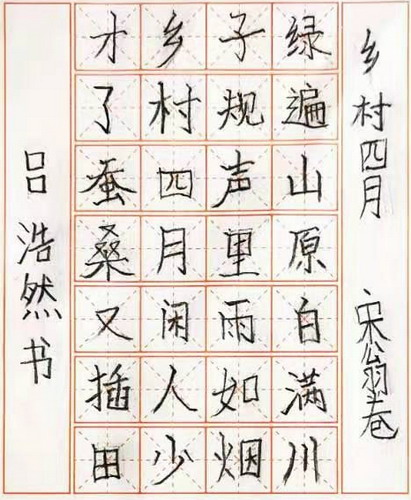 乡村四月 宋翁卷
绿遍山原白满川
子规声里雨如烟
乡村四月闲人少
才了蚕桑又插田
吕浩然书